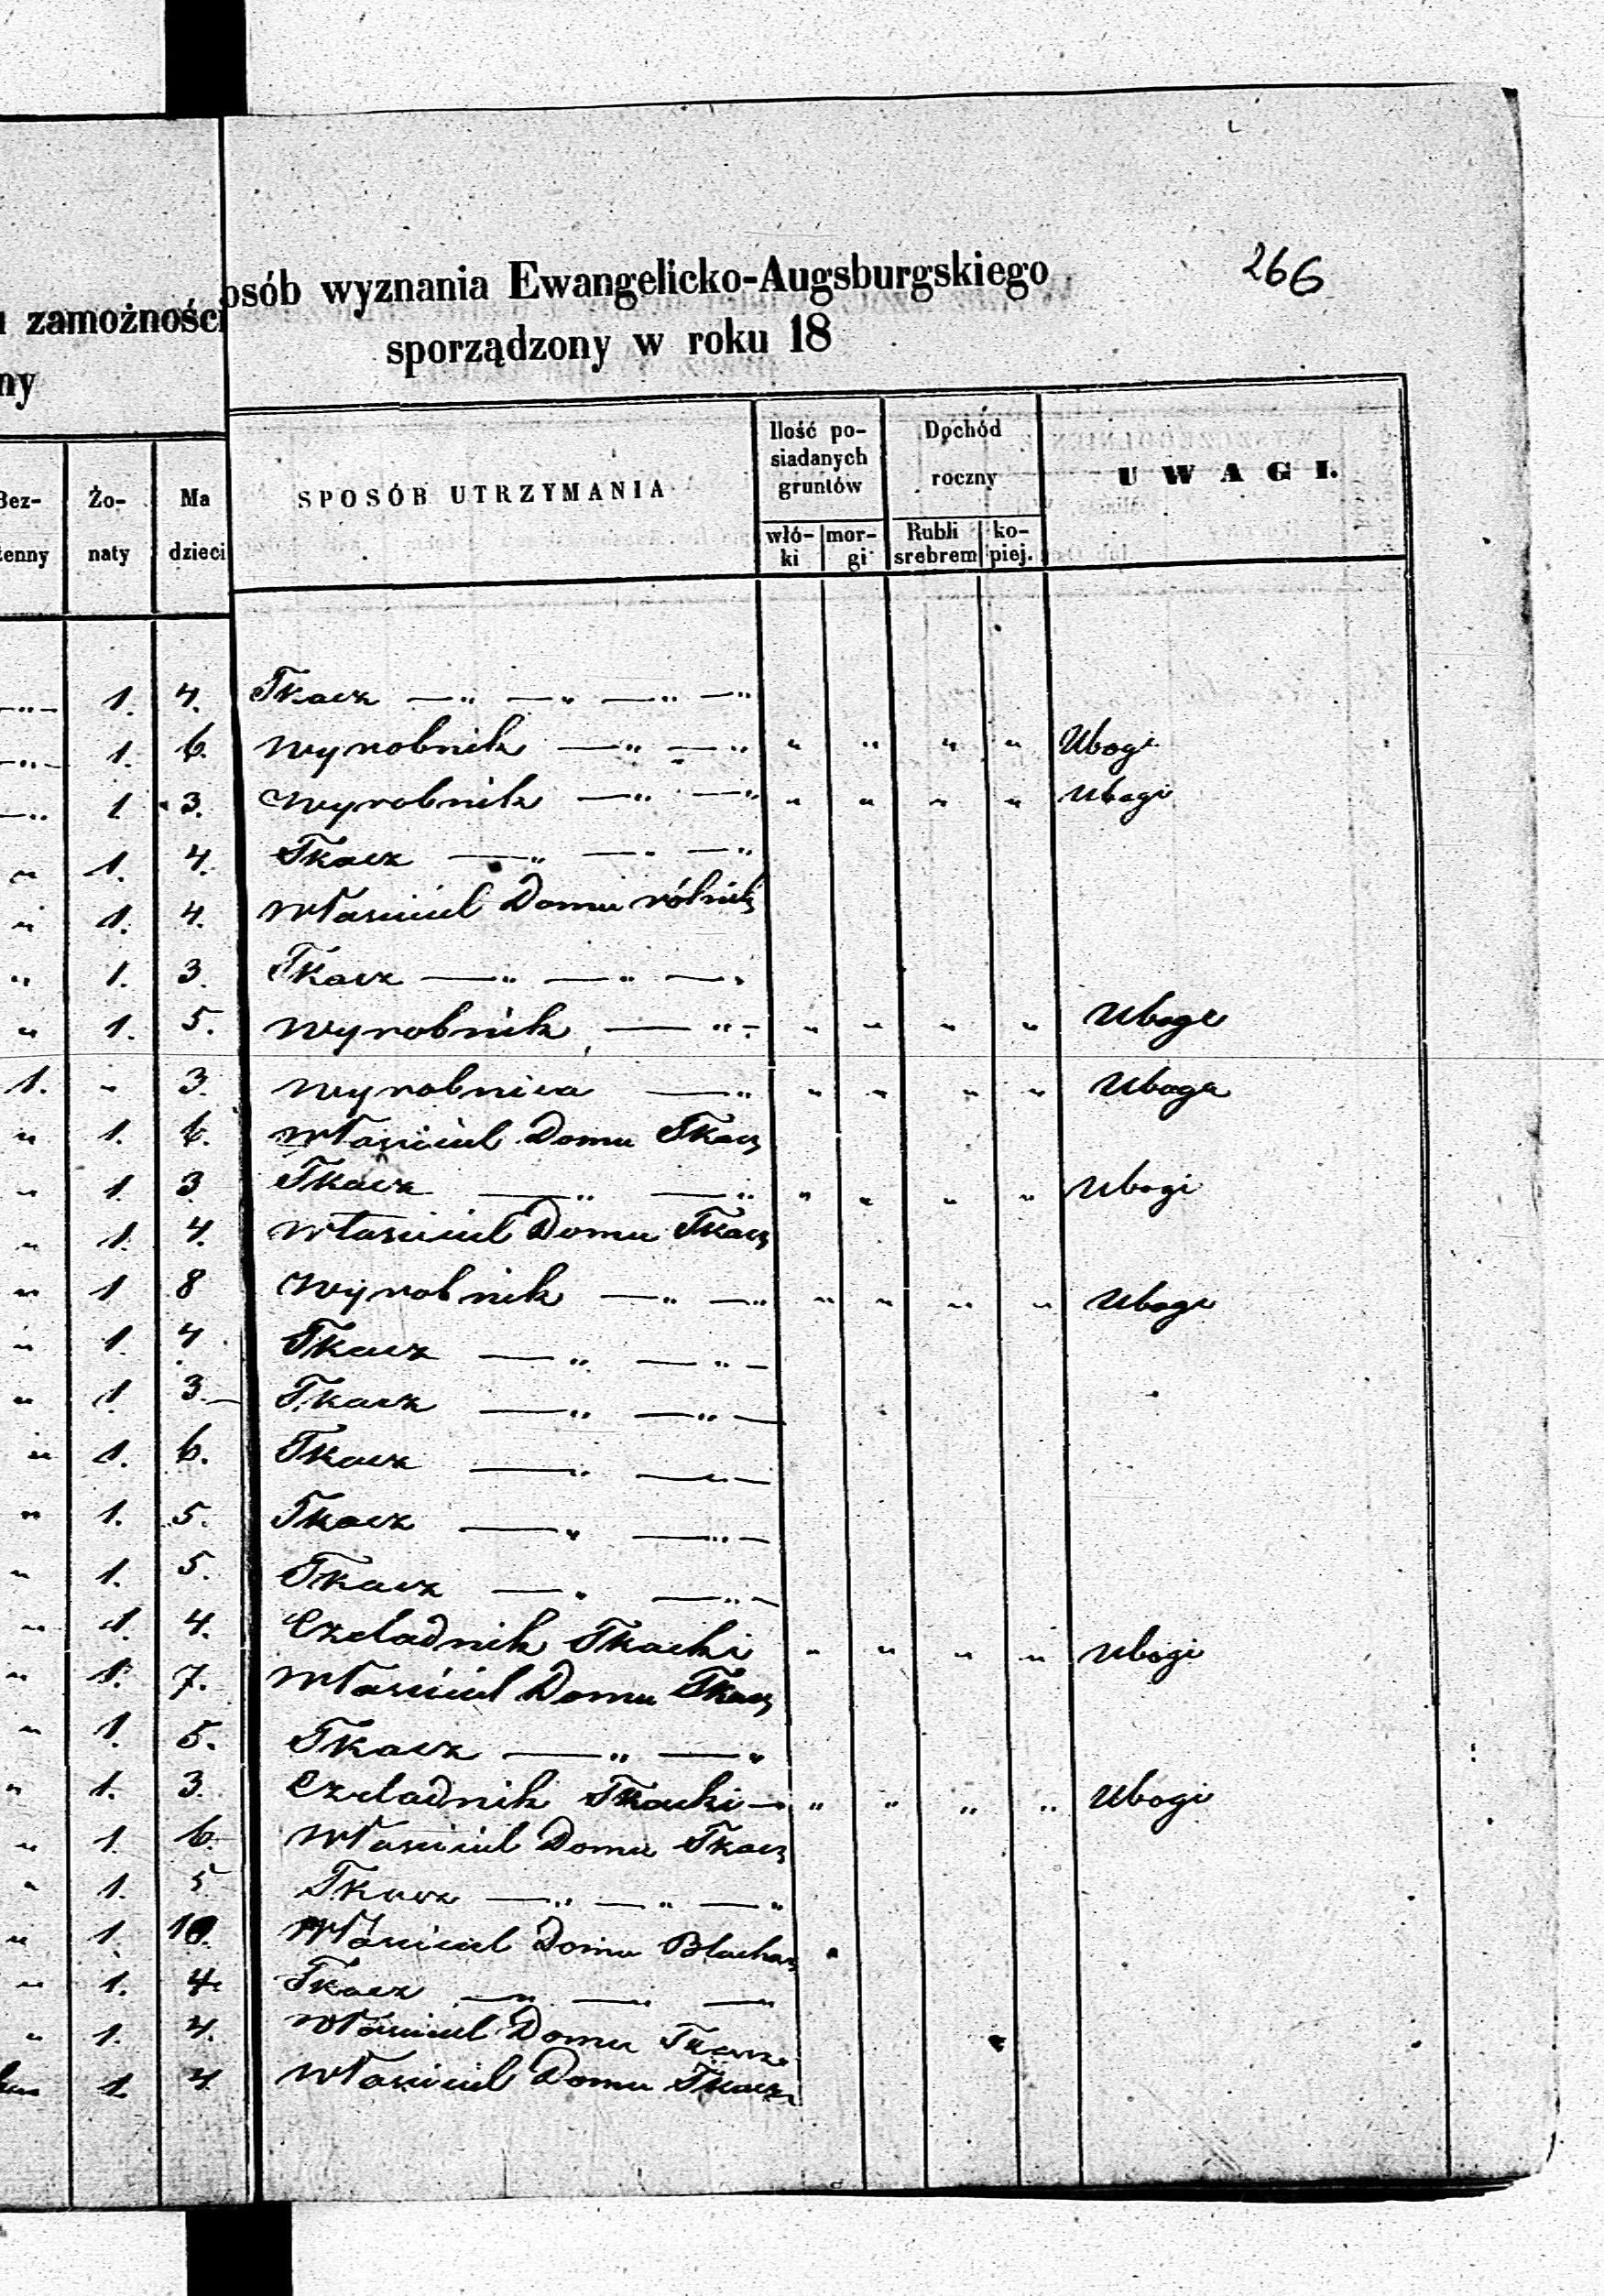 266
osób wyznania Ewangelicko-Augsburgskiego
zamożności
sporządzony w roku 18
ny
Bez-
żenny
Żo-
naty
Ma
dzieci
SPOSÓB UTRZYMANIA
Ilość po-
siadanych
gruntów
włó-
ki
mor-
gi
Dochód
roczny
Rubli
srebrem
ko-
piej.
UWAGI.
—„— 1. 4. Tkacz —„ —„ —„ —„
—„— 1. 6. wyrobnik —„ —„ „ „ „ „ Ubogi
—„ 1 3. wyrobnik —„ —„ „ „ „ „ Ubogi
„ 1. 4. Tkacz —„ —„ —„
„ 1. 4. Własciciel Domu rólnik
„ 1. 3. Tkacz —„ —„ —„
„ 1. 5. wyrobnik —„— „ „ „ „ Ubogi
1. „ 3. wyrobnica —„ „ „ „ „ Uboga
„ 1. 6. własciciel Domu Tkacz
„ 1. 3 Tkacz —„ —„ „ „ „ „ Ubogi
„ 1. 4. własciciel Domu Tkacz
„ 1 8 wyrobnik —„ —„ „ „ „ „ Ubogi
„ 1. 4. Tkacz —„ —„—
„ 1. 3. Tkacz —„ —„—
„ 1. 6. Tkacz —„ —„—
„ 1. 5. Tkacz —„ —„—
„ 1. 5. Tkacz —„ —„—
„ 1. 4. Czeladnik Tkacki „ „ „ „ Ubogi
„ 1. 7. Własciciel Domu Tkacz
„ 1. 5. Tkacz —„ —„
„ 1. 3. Czeladnik Tkacki — „ „ „ „ Ubogi
„ 1. 6. Własciciel Domu Tkacz
„ 1. 5 Tkacz —„ —„ —„
„ 1. 10. Własciciel Domu Blacharz
„ 1. 4. Tkacz —„ —„ —„
„ 1. 4. własciciel Domu Tkacz
1. 4. własciciel Domu Tkacz